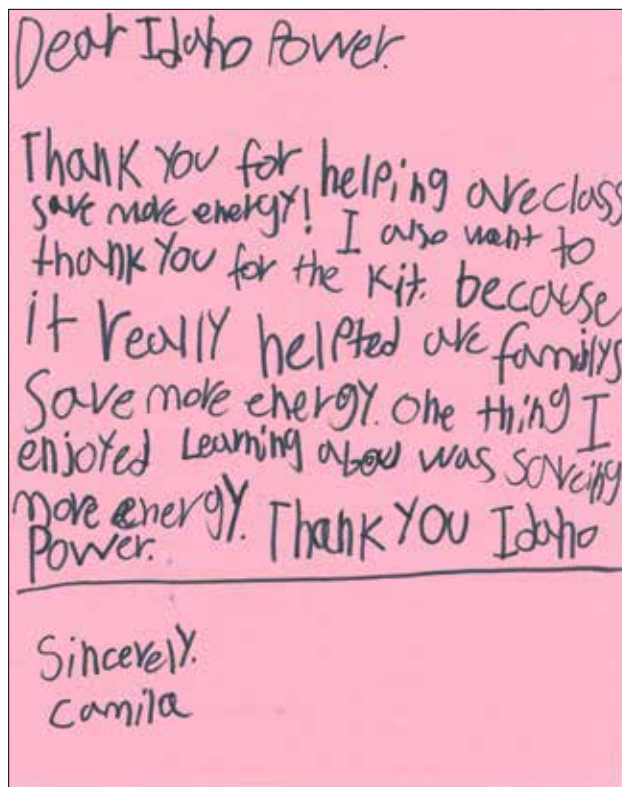 Dear Idaho Power.
Thank you for helping are class
save more energy! I also want to
thank you for the kit. because
it really helpted are familys
Save more energy. One thing I
enjoyed Learning abou was
more energy. Thank you Idaho
Power.
Sincerely.
Camila